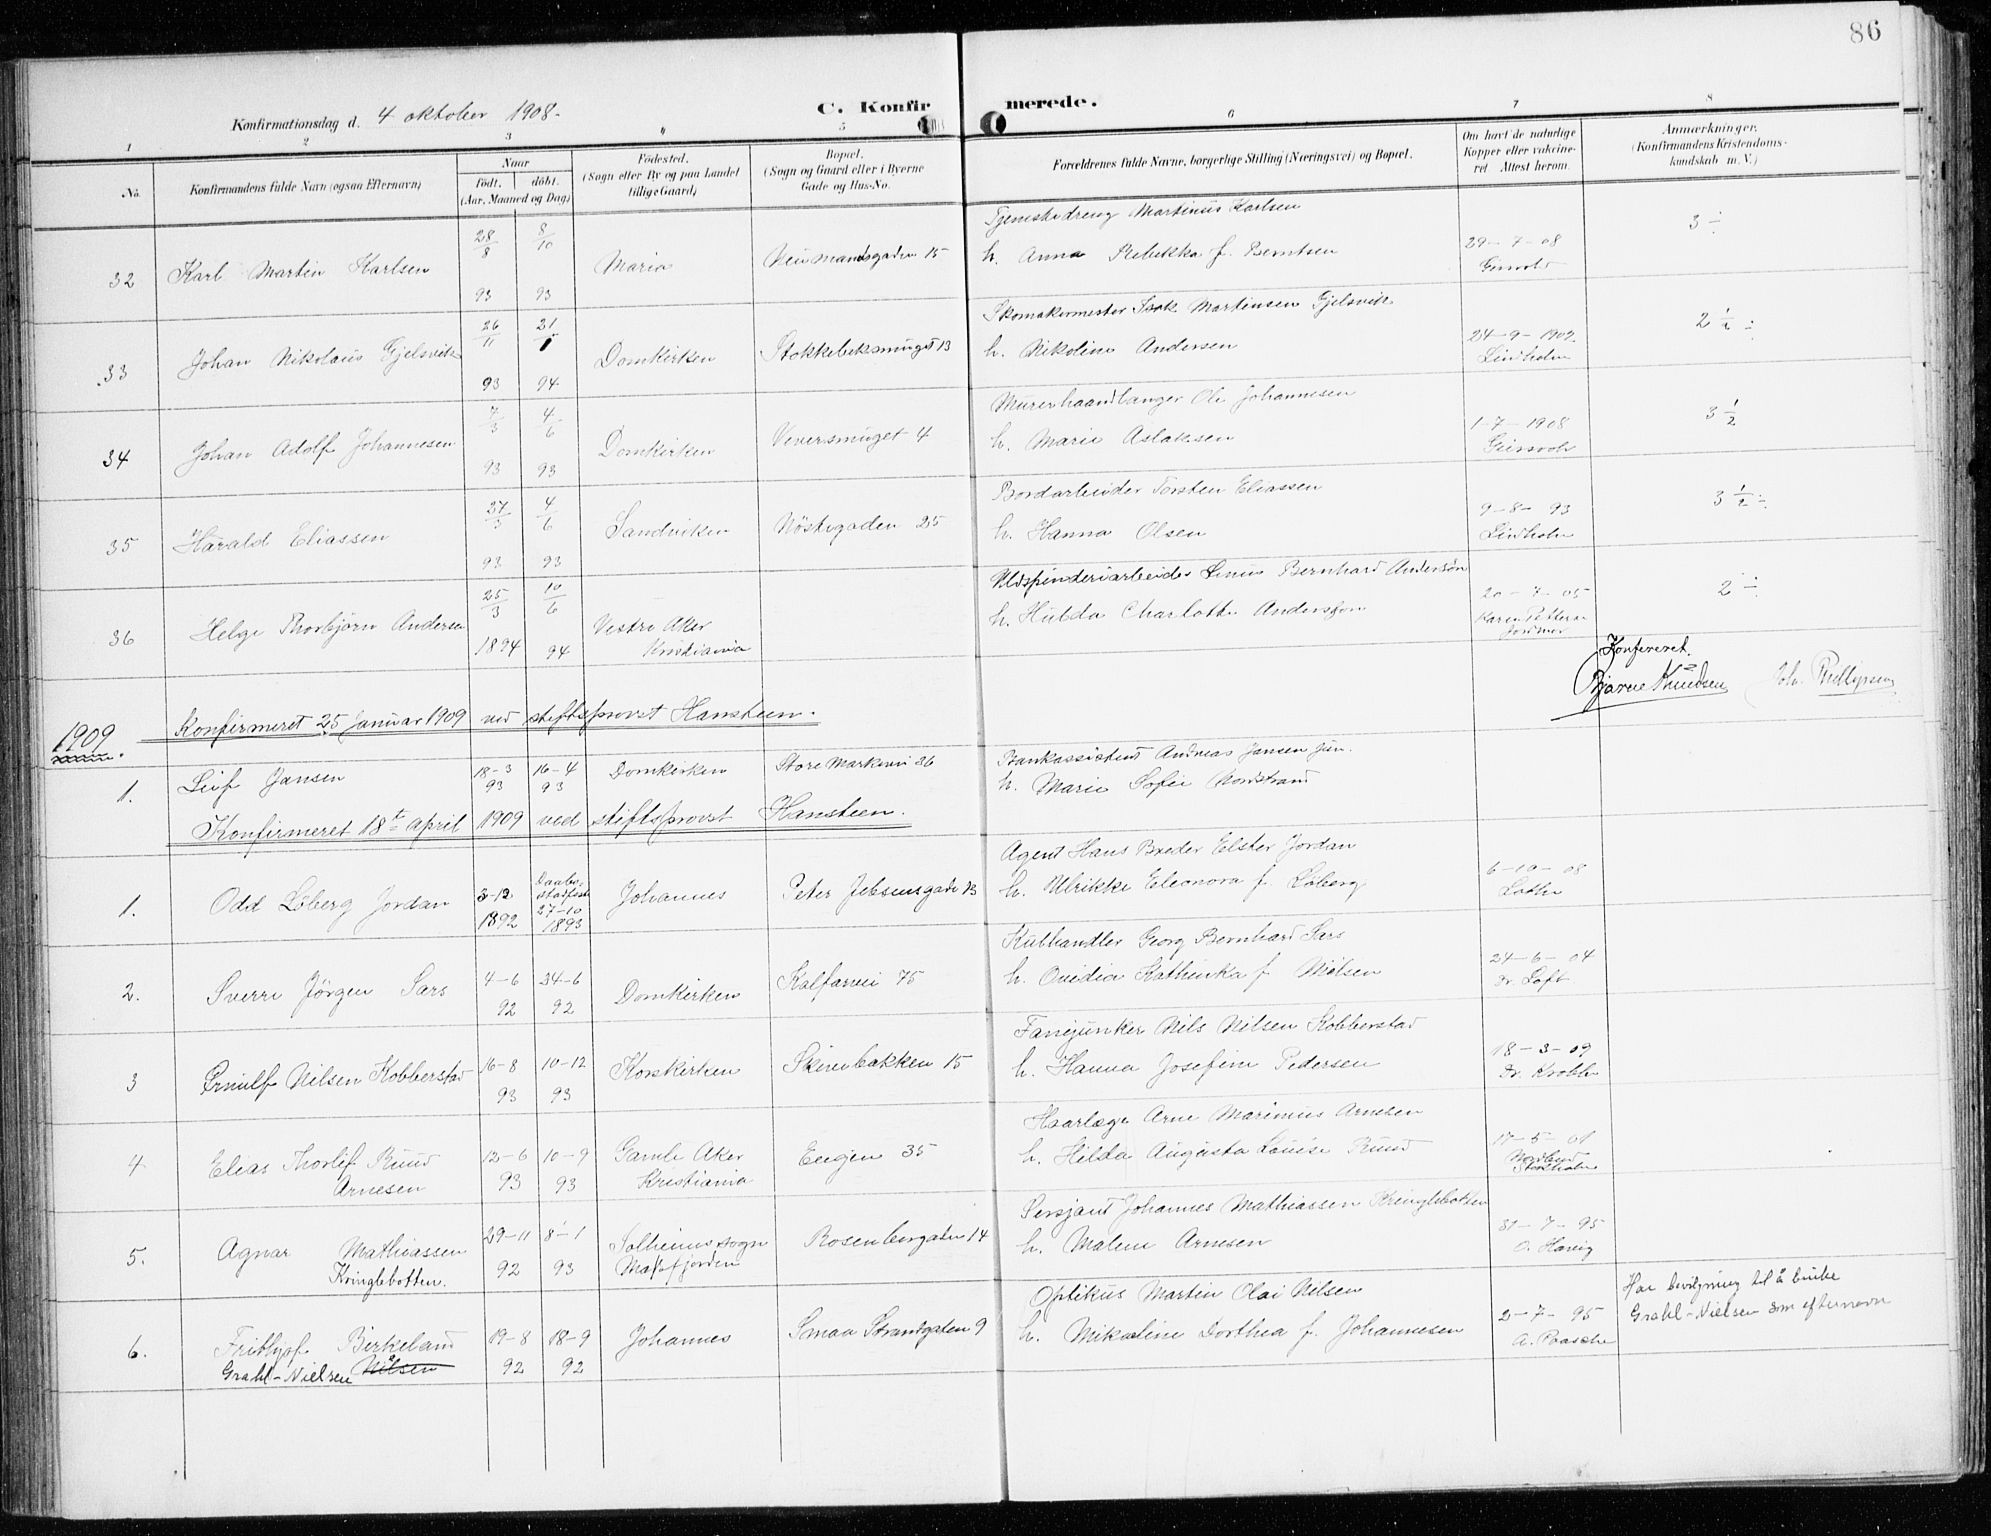 86
Konfirmationsdag d. 4 oktober 1908.
C. Konfirmerede.
1 2 3 4 5 6 7 8
No.
Konfirmandens fulde Navn (ogsaa Efternavn)
Naar
födt. döbt.
(Aar, Maaned og Dag)
Födested.
(Sogn eller By og paa Landet
tillige Gaard)
Bopæl.
(Sogn og Gaard eller i Byerne
Gade og Hus-No.
Forældrenes fulde Navne, borgerlige Stilling (Næringsvei) og Bopæl.
Om havt de naturlige
Kopper eller vakcine-
ret. Attest herom.
Anmærkninger.
(Konfirmandens Kristendoms-
kundskab m. V.)
32 Karl Martin Karlsen 28/8 93 8/10 93 Maria Neumandsgaden 15
Tjenestedreng Martinus Karlsen
h. Anna Rebekka f. Berntsen
29-7-08
3 ÷
33 Johan Nikolaus Gjelsvik 26/11 93 21/1 94 Domkirken Stokkebeksmuget 13
Skomakermester Isak Martinsen Gjelsvik
h. Nikoline Andersen
24-9-1902
Lindholm
2 ½ ÷
34 Johan Adolf Johannesen 7/3 93 4/6 93 Domkirken Veversmuget 4
Murerhaandlanger Ole Johannesen
h. Marie Aslaksen
1-7-1908
3 ½
35 Harald Eliassen 27/3 93 4/6 93 Sandviken Nöstegaden 25
Bordarbeider Torsten Eliassen
h. Hanna Olsen
9-8-93
Lindholm
3 ½ ÷
36 Helge Thorbjørn Andersen 25/3 1894 10/6 94 Vestre Aker
Kristiania
Uldspinderiarbeider Linus Bernhard Andersön
h. Hulda Charlotte Andersson
20-7-05
Karen Pettersen
Jordmor
2 ÷
Konfereret.
Bjarne Knudsen Joh. Phillipsen
1909. Konfirmeret 25 januar 1909 ved stiftsprovst Hansteen.
1. Leif Jansen 18-3 93 16-4 93 Domkirken Store Markevei 36
Bankassistent Andreas Jansen jun.
h. Marie Sofie Nordstrand
Konfirmeret 18t april 1909 ved stiftsprovst Hansteen.
1. Odd Löberg Jordan 3-12 1892 Daabs-
stadfæst
27-10
1893 Johannes Peter Jebsensgade 13
Agent Hans Breder Elster Jordan
h. Ulrikke Eleonora f. Löberg
6-10-08
Lothe
2. Sverre Jörgen Sars 4-6 92 24-6 92 Domkirken Kalfarvei 75
Kulhandler Georg Bernhard Sars
h. Ovidia Kathinka f. Nielsen
24-6-04
Dr. Loft
3 Ørnulf Nilsen Kobberstad 16-8 93 10-12 93 Korskirken Skivebakken 15
Fanejunker Nils Nilsen Kobberstad
h. Hanna Josefine Pedersen
18-3-09
Dr. Krohn
4 Elias Thorlef Ruud
Arnesen 12-6 93 10-9 93 Gamle Aker
Kristiania Engen 35
Haarlæge Arne Marinius Arnesen
h. Hilda Augusta Louise Ruud
17-5-01
Nordlund
Stockholm
5. Agnar Mathiassen
Kringlebotten. 29-11 92 8-1 93 Solheims sogn
Masfjorden Rosenbergaten 14
Sersjant Johannes Mathiassen Kringlebotten
h. Malene Arnesen
31-7-95
O. Hanig
6. Frithjof Birkeland
Grahl-Nielsen Nilsen 19-8 92 18-9 92 Johannes Smaa Strandgaten 9
Optikus Martin Olai Nilsen
h. Mikaline Dorthea f. Johannesen
2-7-95
A. Paasche
Har bevilgning til å bruke
Grahl-Nielsen som efternavn